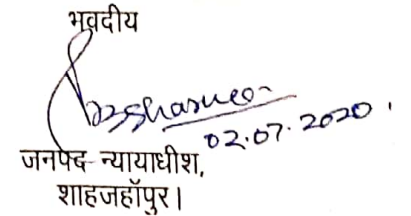 भवदीय
02.07.2020.
जनपद न्यायाधीश,
शाहजहाँपुर।